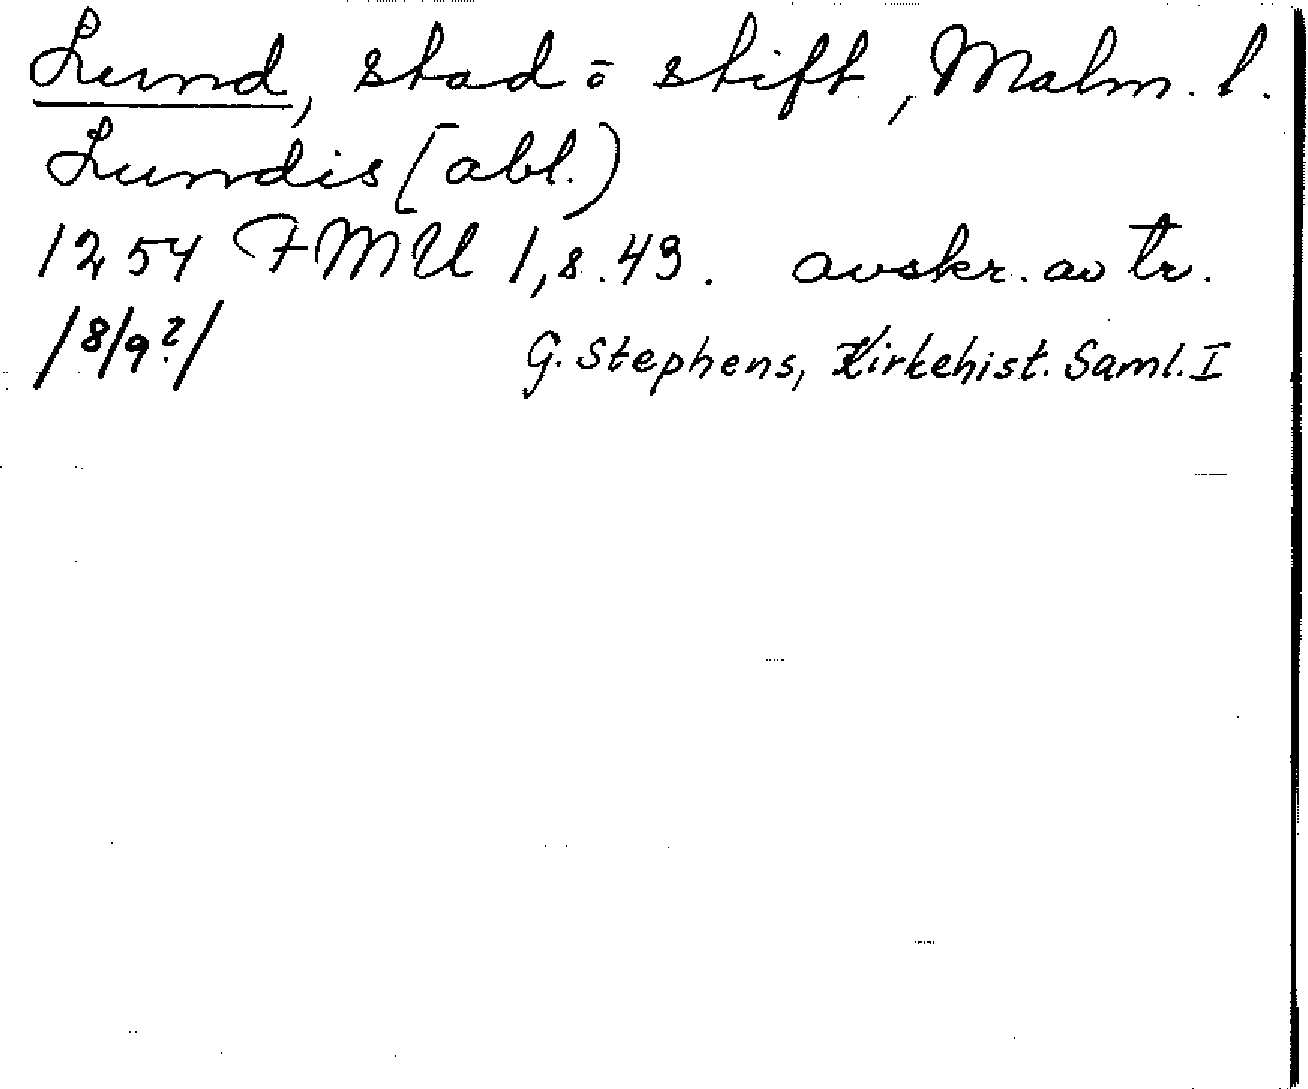 Lund, stad o stift, Malm. l.
Lundis [abl.)
1254 FMU 1, s. 43. avskr. av tr.
/8/9?/ G. Stephens, Kirkehist. Saml. I